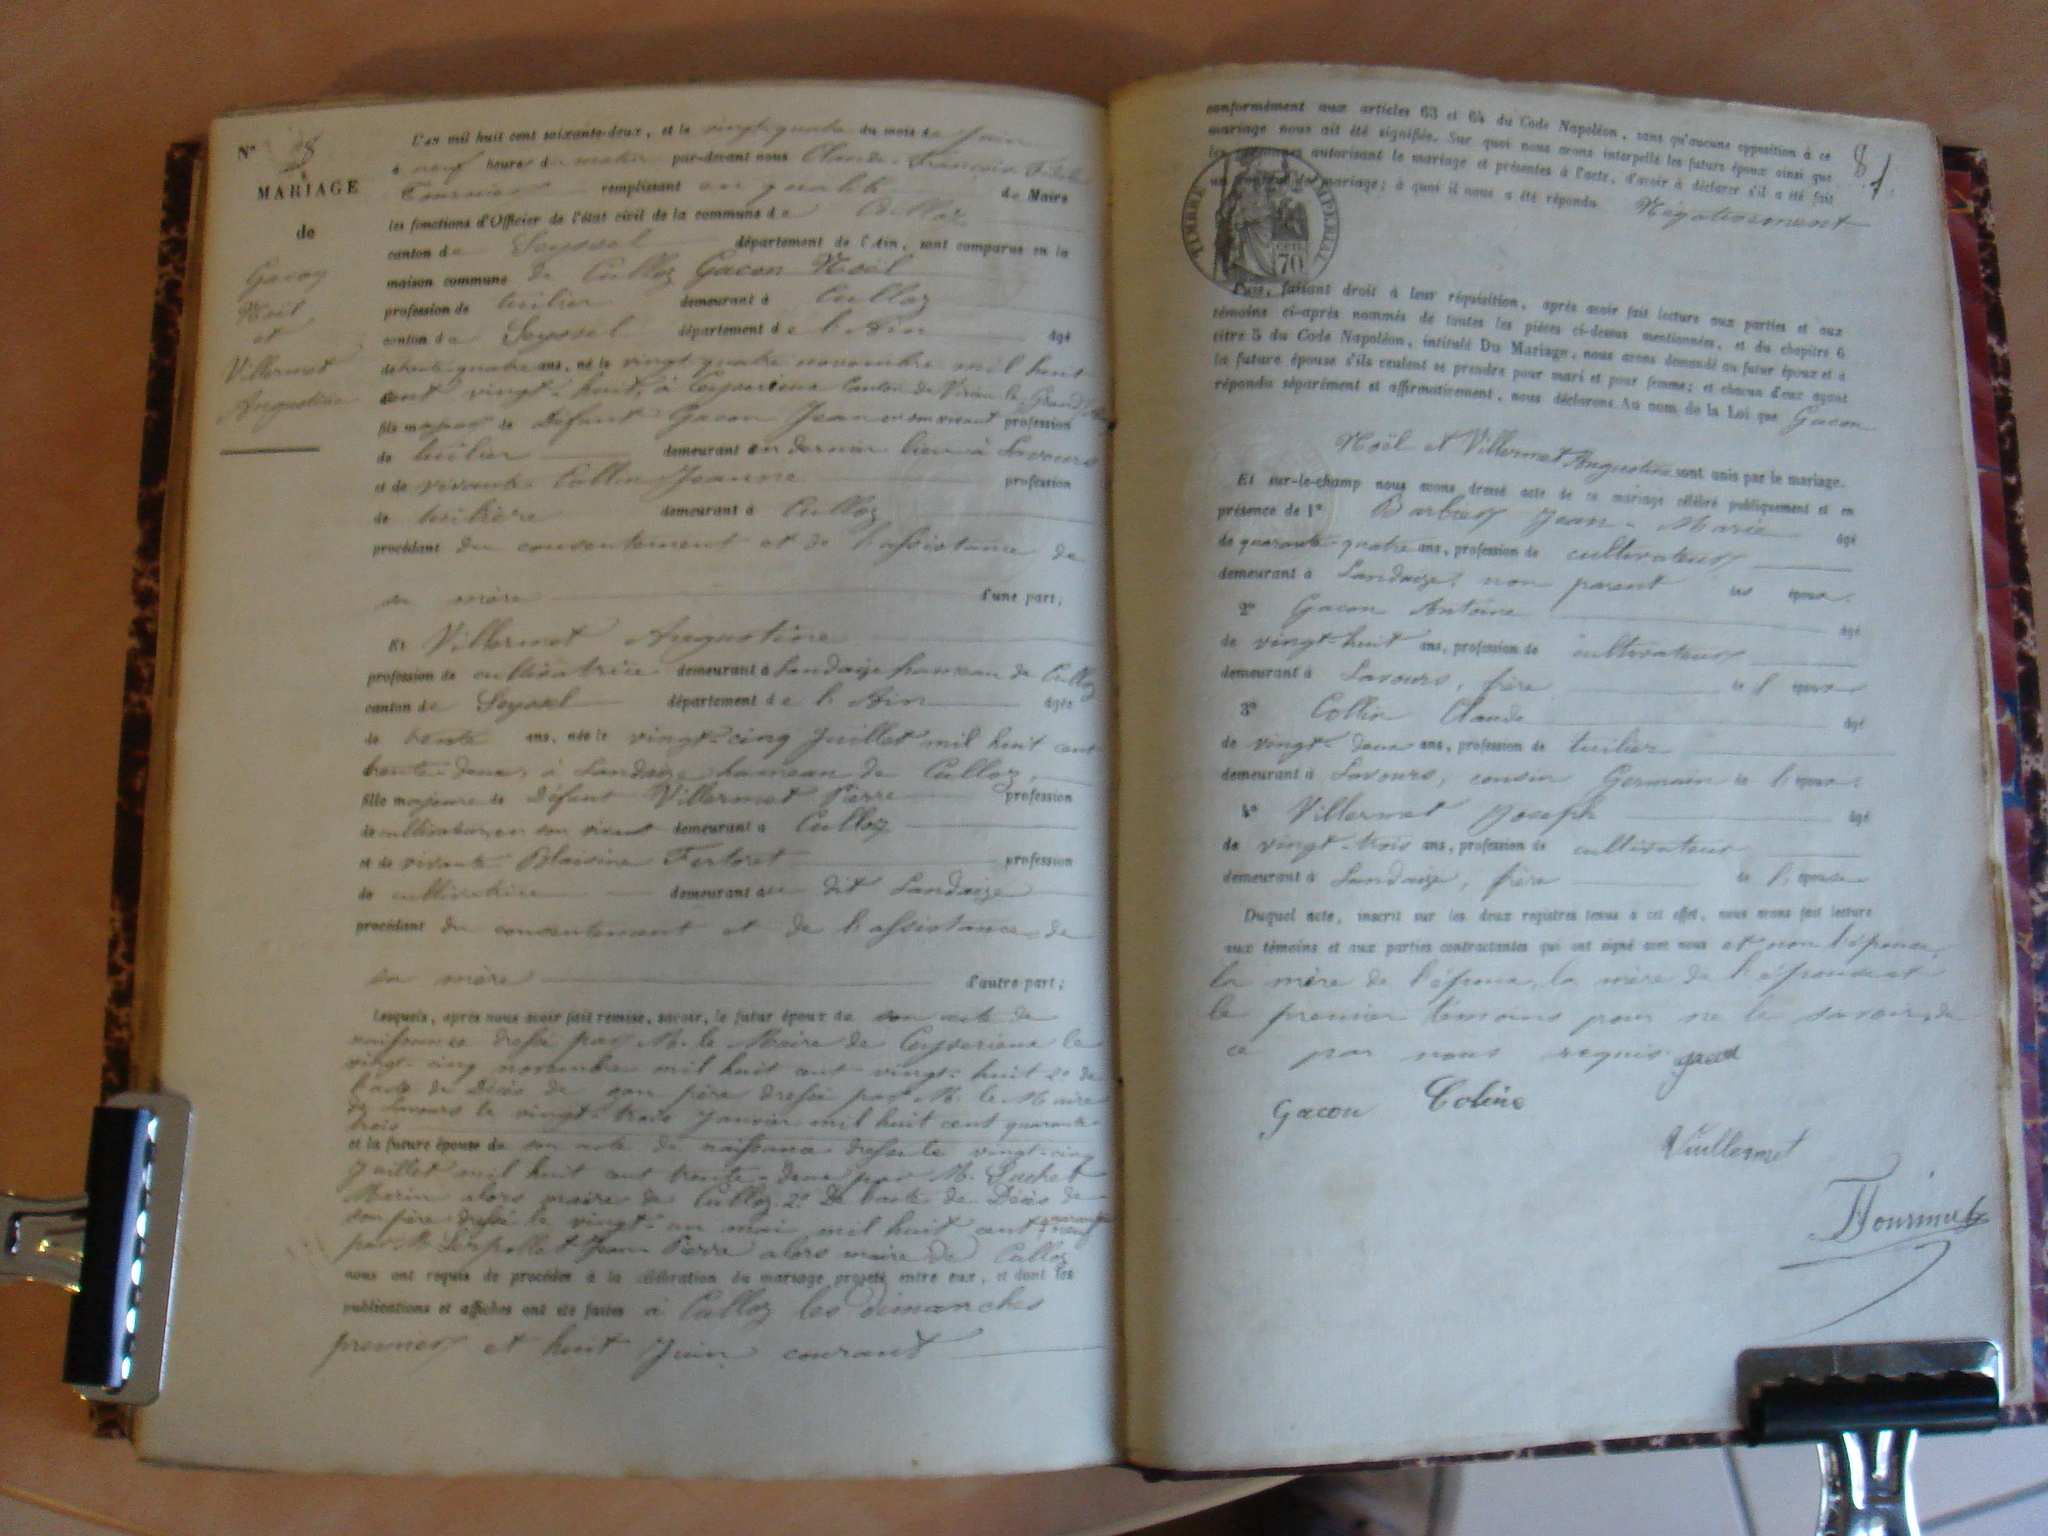 N° 8
MARIAGE
de
Gacon
Noël
et
Villermet
Augustine
L'an mil huit cent soixante-deux, et le vingt quatre du mois de Juin
à neuf heures du matin par-devant nous Claude François
remplissant en qualité de Maire
les fonctions d'Officier de l'état civil de la commune de Culloz
canton de Seyssel département de l'Ain, sont comparus en la
maison commune de Culloz Gacon Noël
profession de tuilier demeurant à Culloz
canton de Seyssel département de l'Ain âgé
de trente quatre ans, né le vingt quatre novembre mil huit
cent vingt-huit, à Ceyzerieux Canton de Virieu-le-Grand
fils majeur de Défunt Gacon Jean en son vivant profession
de tuilier demeurant en dernier lieu à Lavours
et de vivante Collin Jeanne profession
de tuilière demeurant à Culloz
procédant du consentement et de l'assistance de
sa mère d'une part;
Et Villermet Augustine
profession de cultivatrice demeurant à Landaize hameau de Culloz
canton de Seyssel département de l'Ain âgée
de trente ans, née le vingt-cinq Juillet mil huit cent
trente-deux, à Landaize hameau de Culloz,
fille majeure de Défunt Villermet Pierre profession
de cultivateur en son vivant demeurant à Culloz
et de vivante Blaisine Fertoret profession
de cultivatrice demeurant au dit Landaize
procédant du consentement et de l'assistance de
sa mère d'autre part;
Lesquels, après nous avoir fait remise, savoir, le futur époux de son acte de
naissance dressé par M. le Maire de Ceyzerieux le
vingt-cinq novembre mil huit cent vingt-huit 2° de
l'acte de Décès de son père dressé par M. le Maire
de Lavours le vingt-trois Janvier mil huit cent quarante
trois
et la future épouse de son acte de naissance dressé le vingt-cinq
Juillet mil huit cent trente-deux par M.
alors maire de Culloz 2° De l'acte de Décès de
son père dressé le vingt-un mai mil huit cent quarante neuf
par M. Jean Pierre alors maire de Culloz
nous ont requis de procéder à la célébration du mariage projeté entre eux, et dont les
publications et affiches ont été faites à Culloz les dimanches
premier et huit Juin courant
81.
conformément aux articles 63 et 64 du Code Napoléon, sans qu'aucune opposition à ce
mariage nous ait été signifiée. Sur quoi nous avons interpellé les futurs époux ainsi que
les personnes autorisant le mariage et présentes à l'acte, d'avoir à déclarer s'il a été fait
un contrat de mariage; à quoi il nous a été répondu Négativement
TIMBRE IMPERIAL
70 CEN.
Puis, faisant droit à leur réquisition, après avoir fait lecture aux parties et aux
témoins ci-après nommés de toutes les pièces ci-dessus mentionnées, et du chapitre 6
titre 5 du Code Napoléon, intitulé Du Mariage, nous avons demandé au futur époux et à
la future épouse s'ils veulent se prendre pour mari et pour femme; et chacun d'eux ayant
répondu séparément et affirmativement, nous déclarons Au nom de la Loi que Gacon
Noël et Villermet Augustine sont unis par le mariage.
Et sur-le-champ nous avons dressé acte de ce mariage célébré publiquement et en
présence de 1° Jean-Marie âgé
de quarante-quatre ans, profession de cultivateur
demeurant à Landaize, non parent des époux.
2° Gacon Antoine âgé
de vingt-huit ans, profession de cultivateur
demeurant à Lavours, frère de l'époux
3° Collin Claude âgé
de vingt-deux ans, profession de tuilier
demeurant à Lavours, cousin Germain de l'époux.
4° Villermet Joseph âgé
de vingt-trois ans, profession de cultivateur
demeurant à Landaize, frère de l'épouse
Duquel acte, inscrit sur les deux registres tenus à cet effet, nous avons fait lecture
aux témoins et aux parties contractantes qui ont signé avec nous et non l'épouse,
la mère de l'époux, la mère de l'épouse et
le premier témoins pour ne le savoir, de
ce par nous requis. gacon
Gacon Coline
Vuillermet